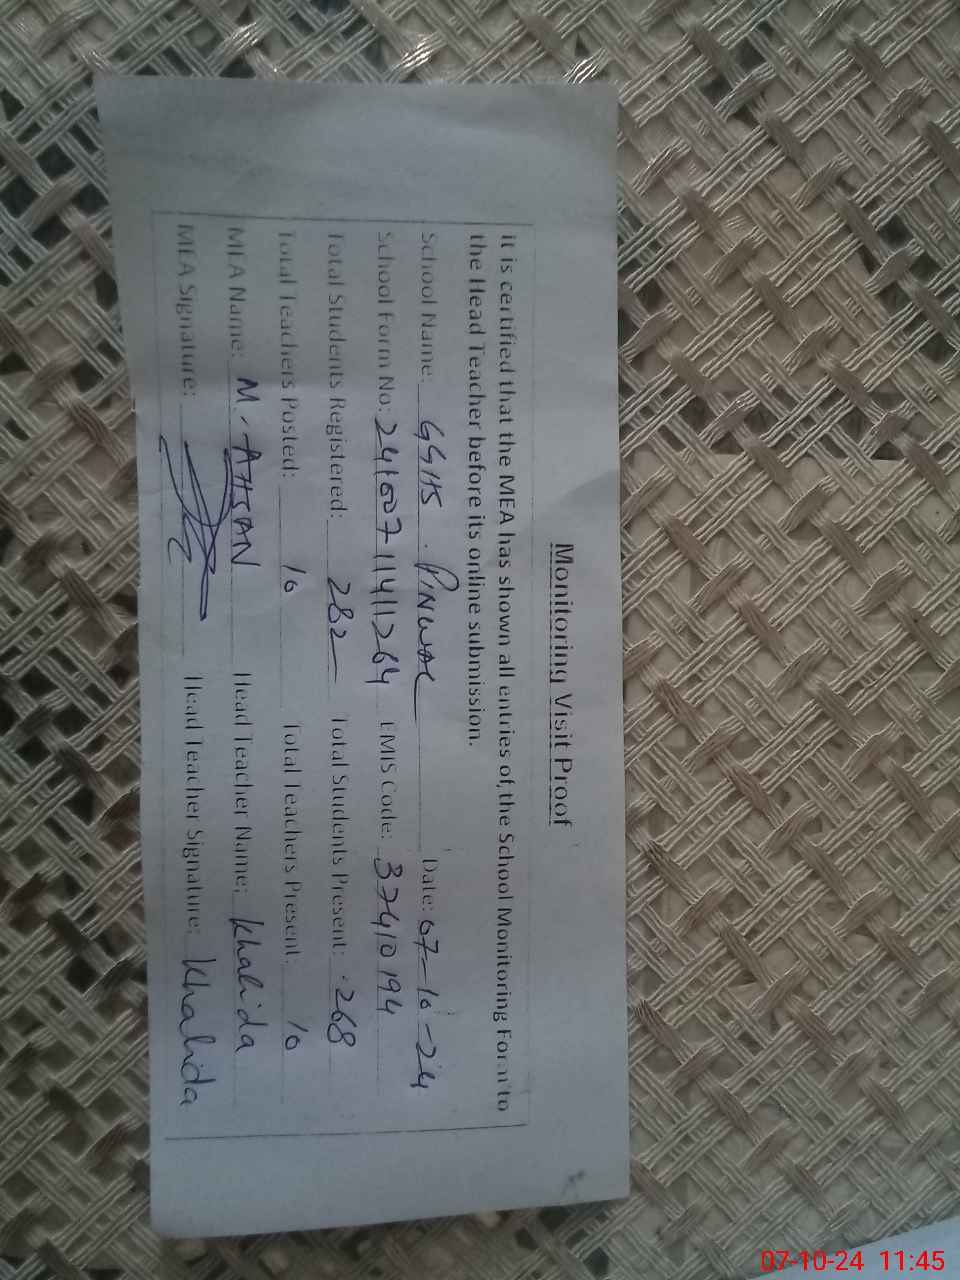 Monitoring Visit Proof
it is certified that the MEA has shown all entries of the School Monitoring Form to
the Head Teacher before its online submission.
School Name: GGHS. Pinwal Date: 07-10-24
School Form No: EMIS Code: 37410194
Total Students Registered: 282 Total Students Present: 268
Total Teachers Posted: 10 Total Teachers Present: 10
MEA Name: M. AHSAN Head Teacher Name: Khalida
MEA Signature: Head Teacher Signature: Khalida
07-10-24 11:45